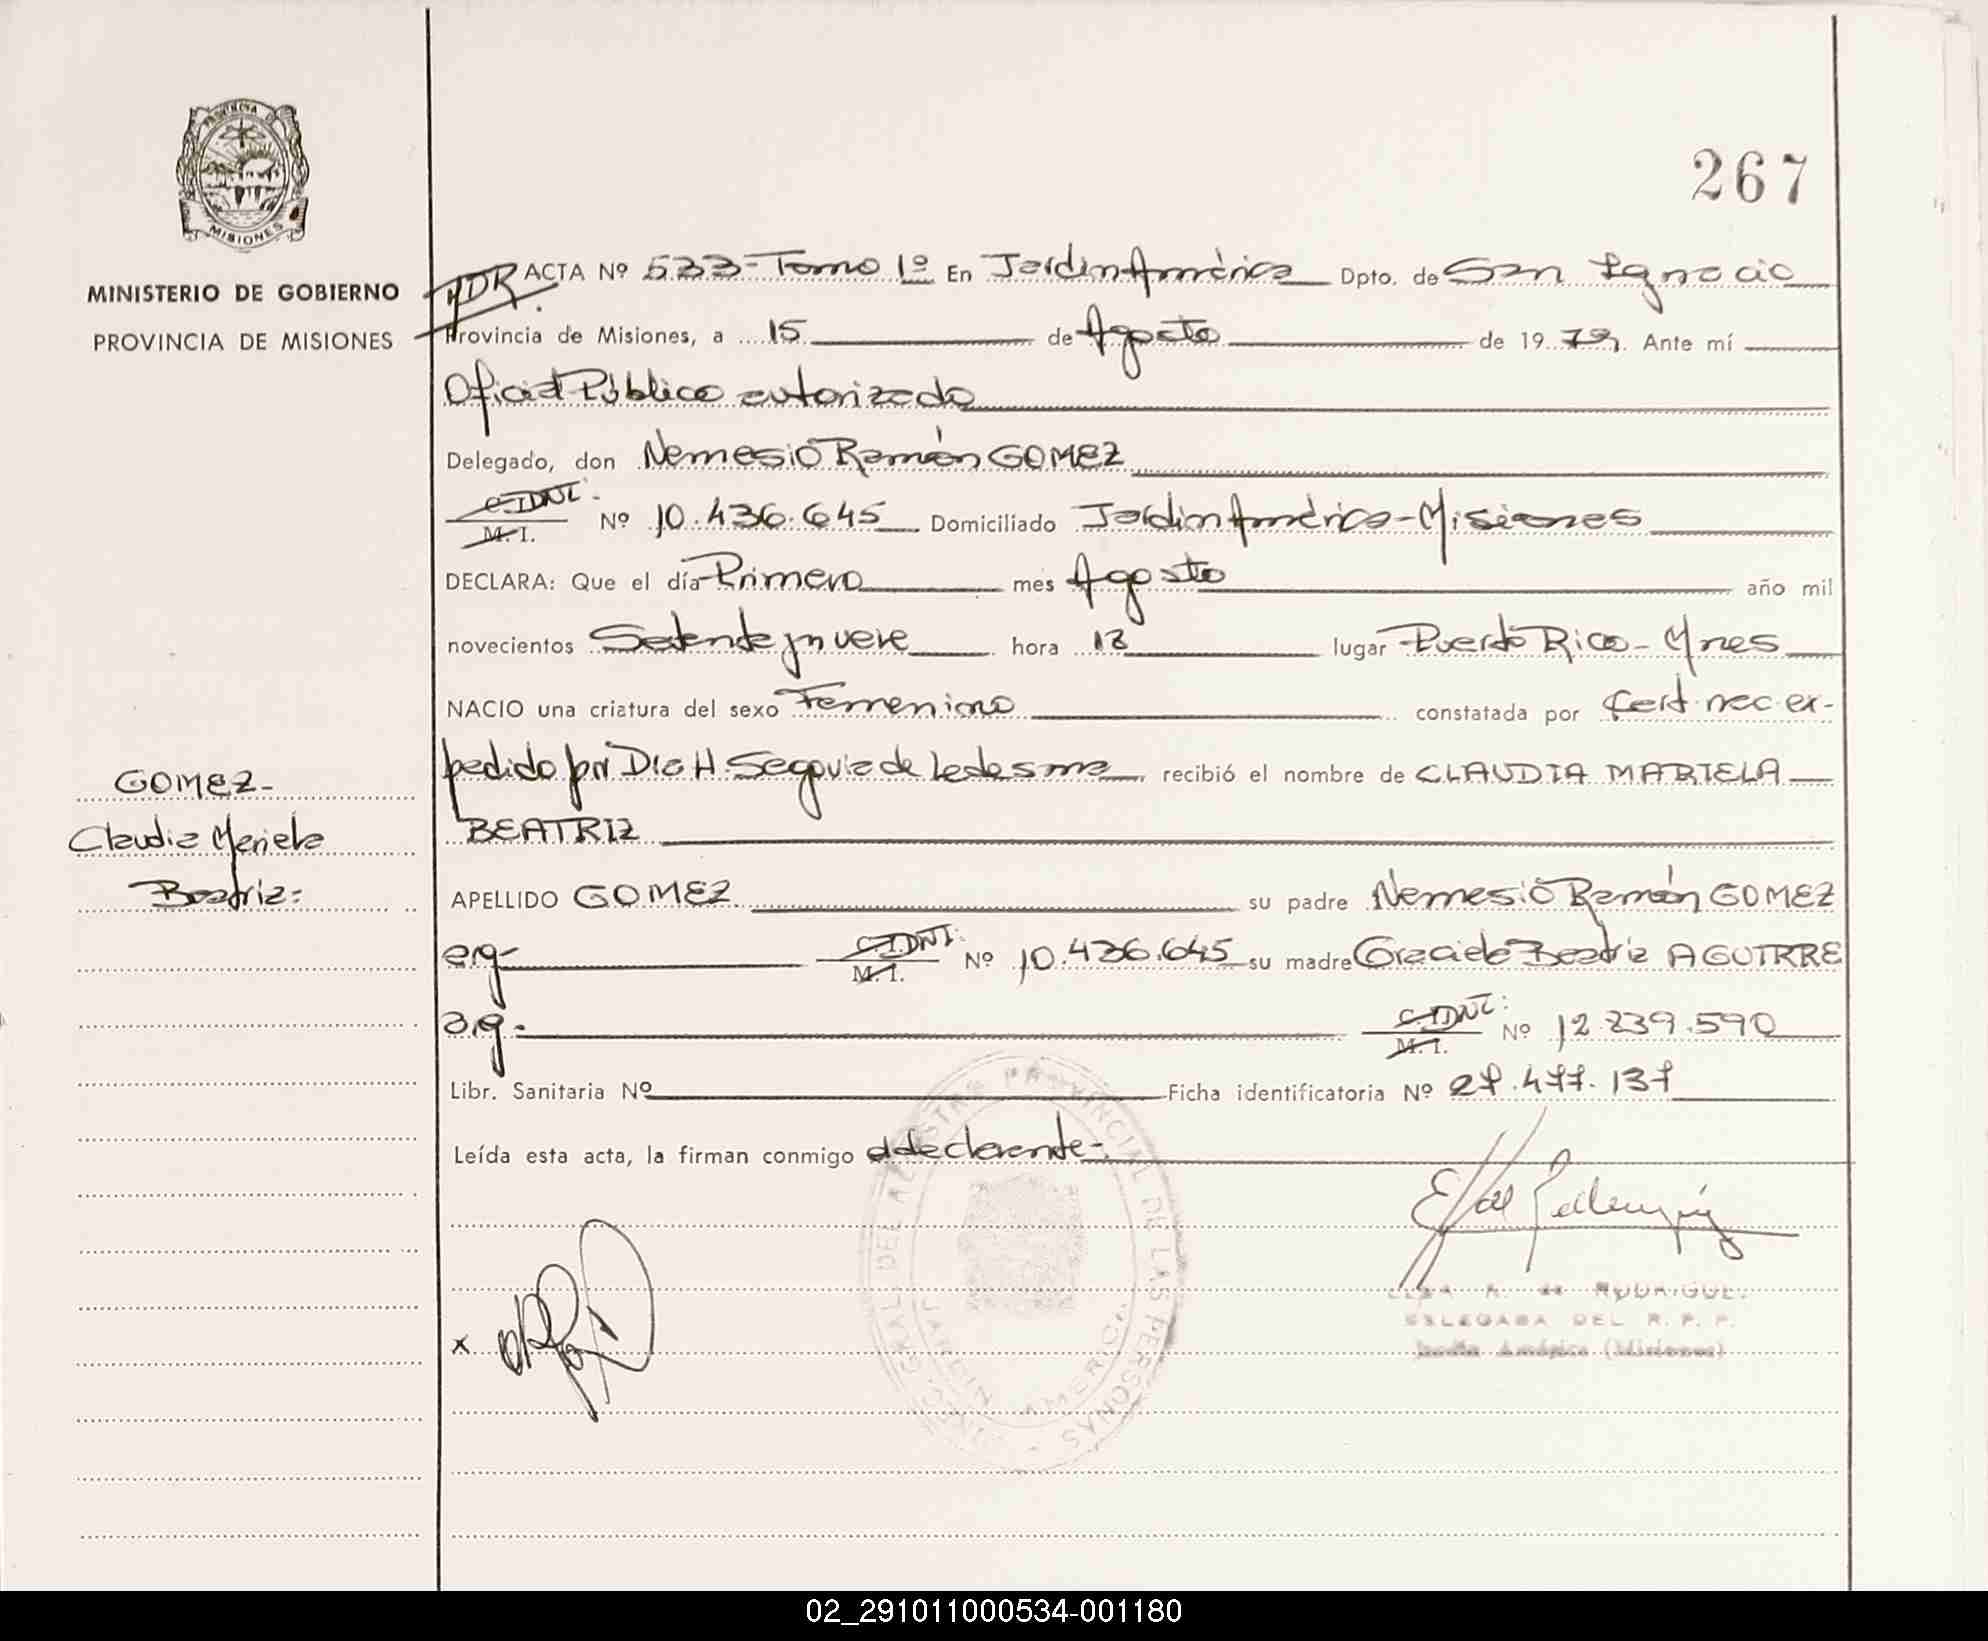 PROVINCIA DE
MISIONES
MINISTERIO DE GOBIERNO
PROVINCIA DE MISIONES
267
ACTA Nº 533-Tomo 1º En Jardín América Dpto. de San Ignacio
Provincia de Misiones, a 15 de Agosto de 1979. Ante mí
Oficial Público autorizado
Delegado, don Nemesio Ramón GOMEZ
C.I. DNI.
M. I. Nº 10.436.645 Domiciliado Jardín América-Misiones
DECLARA: Que el día Primero mes Agosto año mil
novecientos Setenta y nueve hora 13 lugar Puerto Rico-Mnes
NACIO una criatura del sexo Femenino constatada por Cert. nac. ex-
pedido por Dra H. Segovia de Ledesma recibió el nombre de CLAUDIA MARIELA
BEATRIZ
GOMEZ-
Claudia Mariela
Beatriz=
APELLIDO GOMEZ su padre Nemesio Ramón GOMEZ
arg- C.I. DNI. M. I. Nº 10.436.645 su madre Graciela Beatriz AGUIRRE
arg- C. DNI: M. I. Nº 12.239.590
Libr. Sanitaria Nº Ficha identificatoria Nº 27.477.137
Leída esta acta, la firman conmigo el declarante-
PROVINCIAL DE LAS PERSONAS
AMERICA
x
DELEGADA DEL R. P. P.
Jardín América (Misiones)
02_291011000534-001180